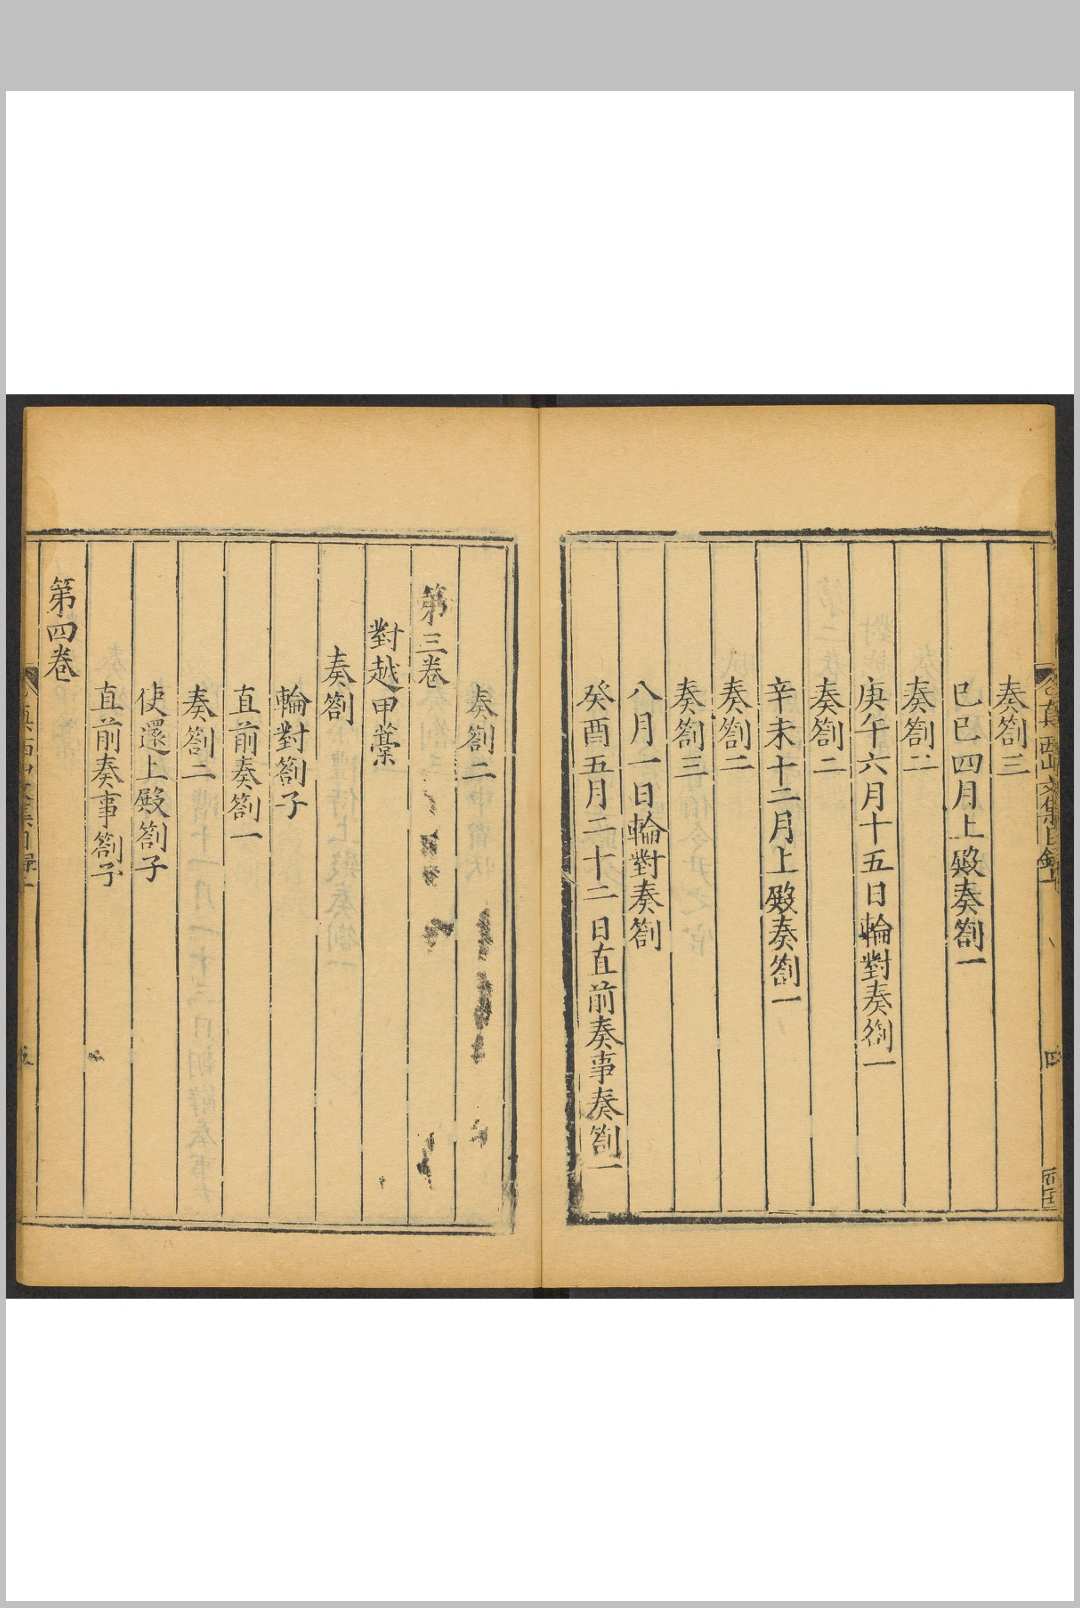 奏劄三
己巳四月上殿奏劄一
奏劄二
庚午六月十五日輪對奏劄一
奏劄二
辛未十二月上殿奏劄一
奏劄二
奏劄三
八月一日輪對奏劄
癸酉五月二十二日直前奏事奏劄一
奏劄二
第三卷
對越甲藁
奏劄
輪對劄子
直前奏劄一
奏劄二
使還上殿劄子
直前奏事劄子
第四卷